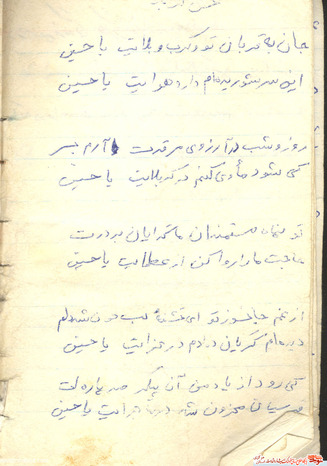 جان به قربان تو و کرب و بلایت یا حسین
این سر شوریده‌ام دارد هوایت یا حسین
روز و شب در آرزوی مرقدت آرم بسر
کی شود مأوی کنم در کربلایت یا حسین
تو پناه مستمندان ما گدایان بر درت
حاجت ما را روا کن از عطایت یا حسین
از غم جانسوز تو ای تشنه لب خون شد دلم
دیده‌ام گریان دلم در عزایت یا حسین
کی رود از یاد من آن پیکر صد پاره‌ات
قدسیان محزون شد در عزایت یا حسین